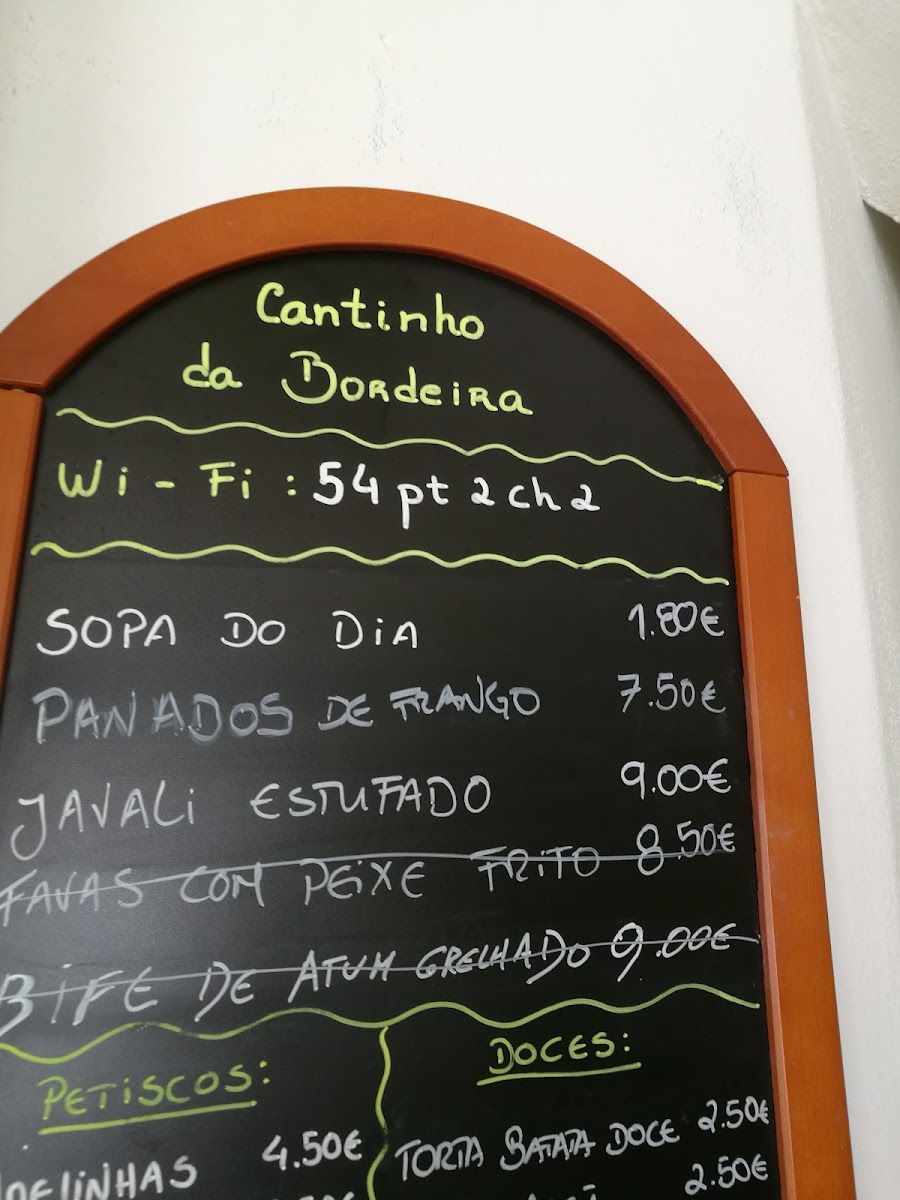 Cantinho
da Bordeira
Wi-Fi: 54pt2ch2
SOPA DO DiA 1.80€
PANADOS DE FRANGO 7.50€
JAVALi ESTUFADO 9.00€
FAVAS COM PEiXE FRiTO 8.50€
BiFE DE ATUM GRELHADO 9.00€
PETiSCOS:
4.50€
DOCES:
TORTA BATATA DOCE 2.50€
2.50€